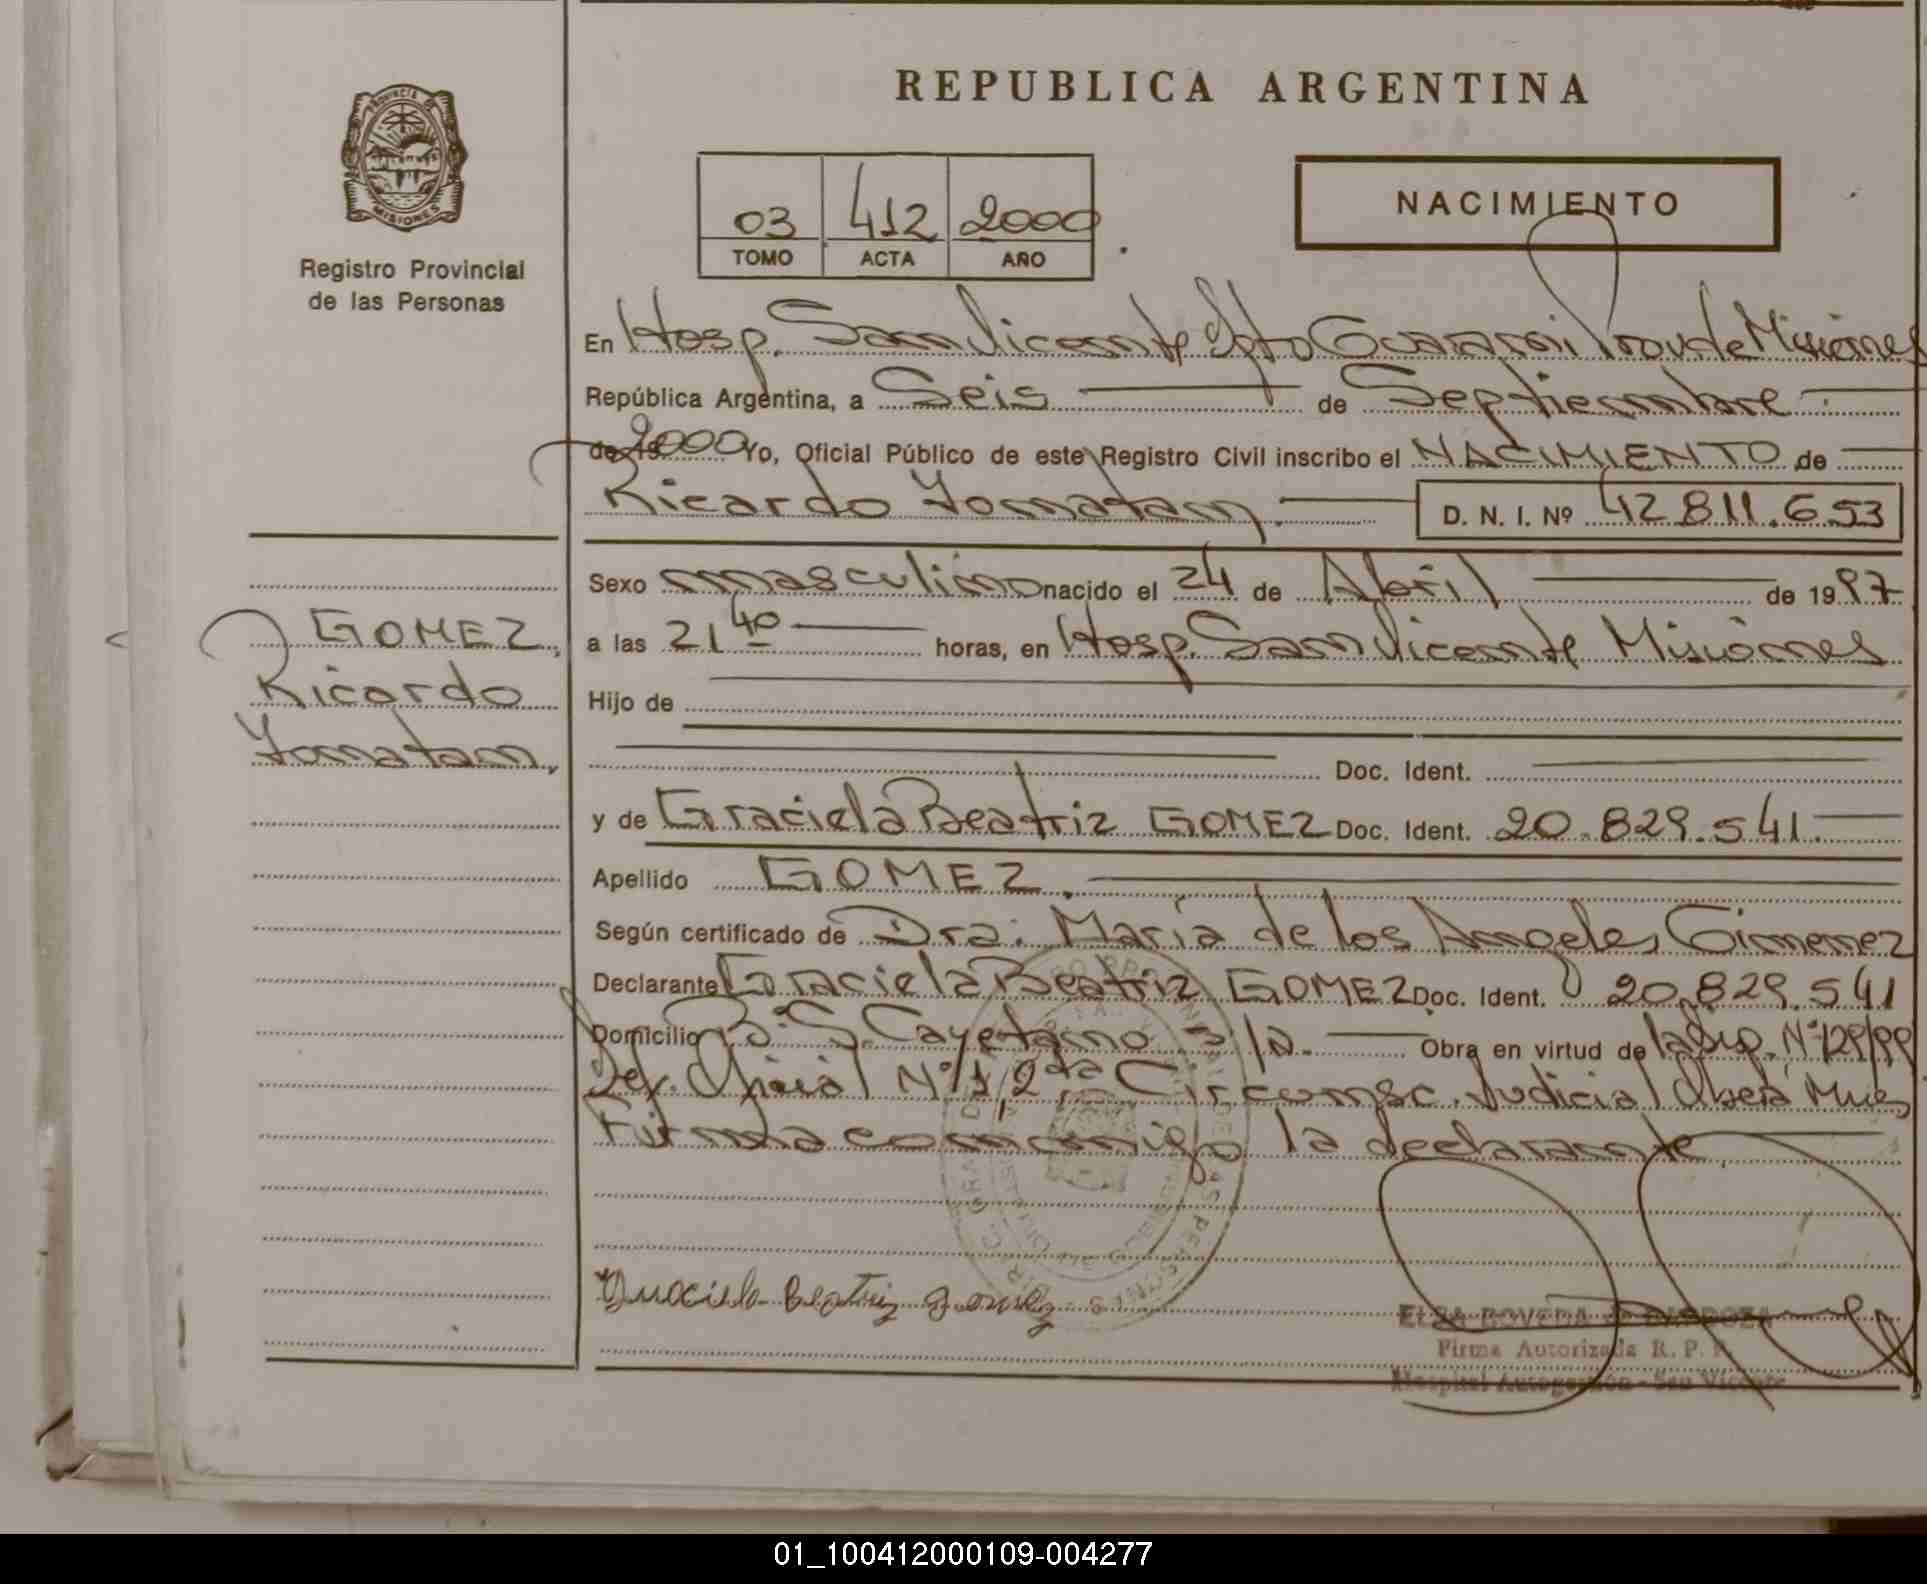 REPUBLICA ARGENTINA
PROVINCIA DE
MISIONES
Registro Provincial
de las Personas
03 412 2000
TOMO ACTA AÑO
NACIMIENTO
En Hosp. San Vicente Dpto Guarani Prov de Misiones
República Argentina, a Seis de Septiembre
de 19 2000 Yo, Oficial Público de este Registro Civil inscribo el NACIMIENTO de
Ricardo Yonatan. D. N. I. Nº 42.811.653
Sexo masculino nacido el 24 de Abril de 1997
a las 21 40 horas, en Hosp. San Vicente Misiones
Hijo de
Doc. Ident.
y de Graciela Beatriz GOMEZ Doc. Ident. 20.829.541.
Apellido GOMEZ.
Según certificado de Dra. María de los Angeles Gimenez
Declarante Graciela Beatriz GOMEZ Doc. Ident. 20.829.541
Domicilio Bº S. Cayetano s/n. Obra en virtud de la Disp. Nº 129/99
Def. Oficial Nº 1, 2da Circunsc. Judicial Oberá Mnes
Firma conmigo la declarante
GOMEZ,
Ricardo
Yonatan,
Graciela Beatriz Gomez
ELSA BOVEDA de
Firma Autorizada R. P. P.
Hospital Autogestión - San Vicente
01_100412000109-004277